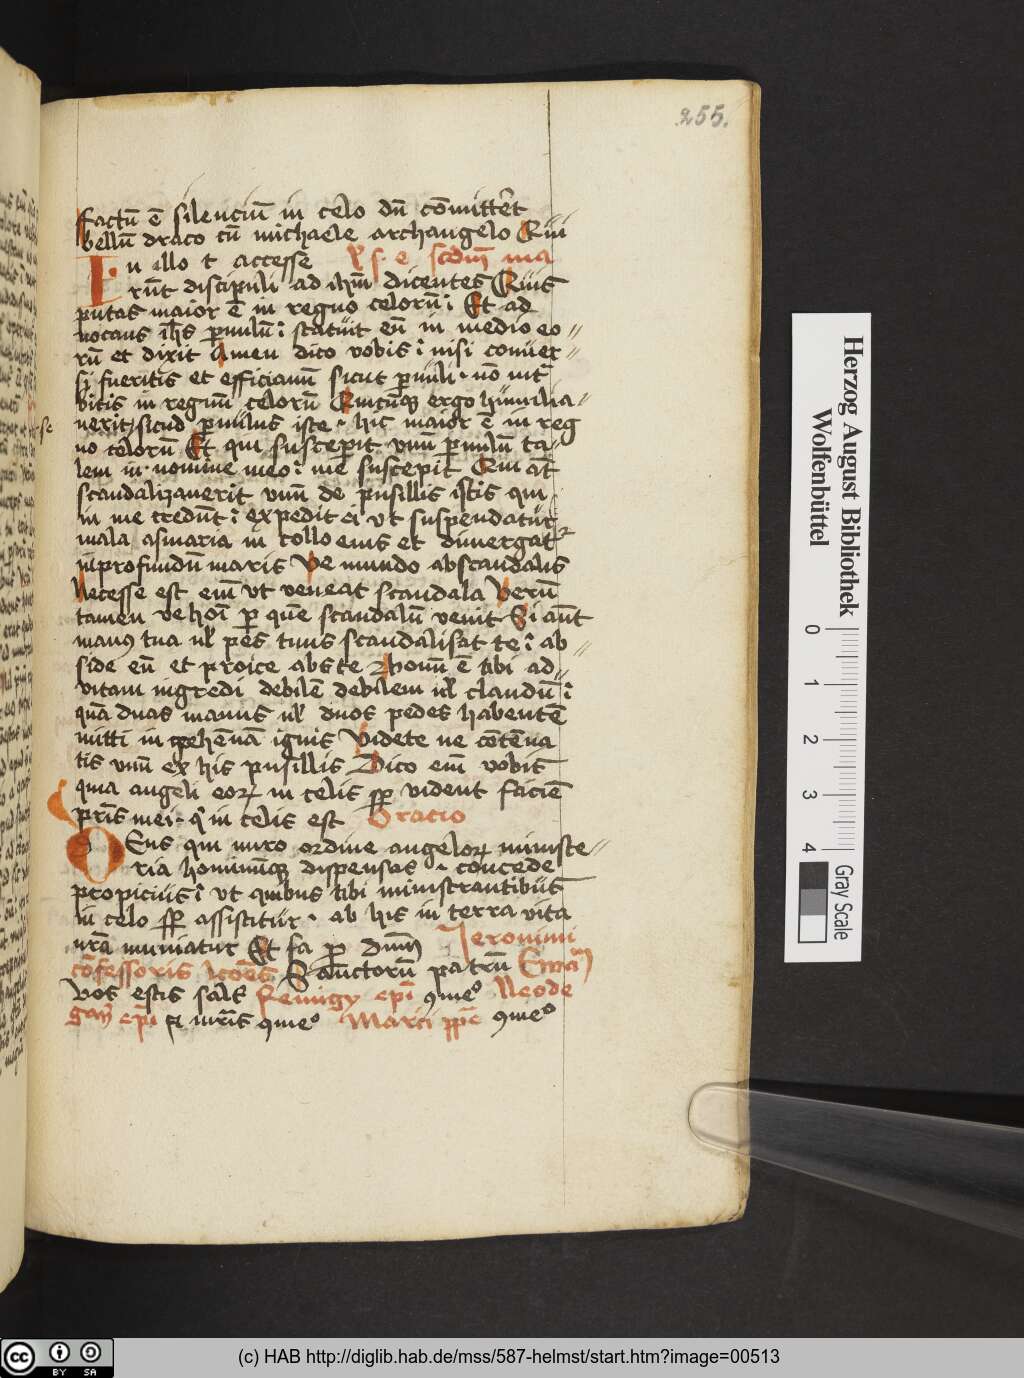 255.
factū ē silenciū in celo dū cōmitteret
bellū draco cū michaele archangelo Qui
In illo t accesse
rūt discipuli ad ihm dicentes Quis
putas maior ē in regno celorū Et ad
uocans ihs paruulū statuit eū in medio eo
rū et dixit Amen dico vobis nisi conuer
si fueritis et efficiamī sicut paruuli nō int
bitis in regnū celorū Quicūq ergo humilia
uerit sicud paruulus iste hic maior ē in reg
no celorū Et qui susceperit vnū paruulū ta
lem in nomine meo me suscepit Qui āt
scandalizauerit vnū de pusillis istis qui
in me credūt expedit ei vt suspendatur
mala asinaria in collo eius et dimergat
in profundū maris Ve mundo abscandalis
Necesse est eni vt veneat scandala Verū
tamen ve hoī per quē scandalū venit Si aūt
manus tua ul pes tuus scandalisat te ab
side eū et proice abs te bonū ē tibi ad
vitam ingredi debilē debilem ul claudū
quā duas manus ul duos pedes habentē
mitti in gehēnā ignis Videte ne cōtēna
tis vnū ex his pusillis Dico eni vobis
quia angeli eor in celis sp vident faciē
pris mei q in celis est Oracio
DEus qui miro ordine angelor ministe
ria hominūq dispensas concede
propicius vt quibus tibi ministrantibus
in celo sp assistitur ab his in terra vita
nrā muniatur Et fa per dnm Jeronimi
cōfessoris Sanctorū patrū
Vos estis sals Remigy epi
epi Marci ppe
(c) HAB http://diglib.hab.de/mss/587-helmst/start.htm?image=00513
Herzog August Bibliothek
Wolfenbüttel
0 1 2 3 4
Gray Scale
cc BY SA